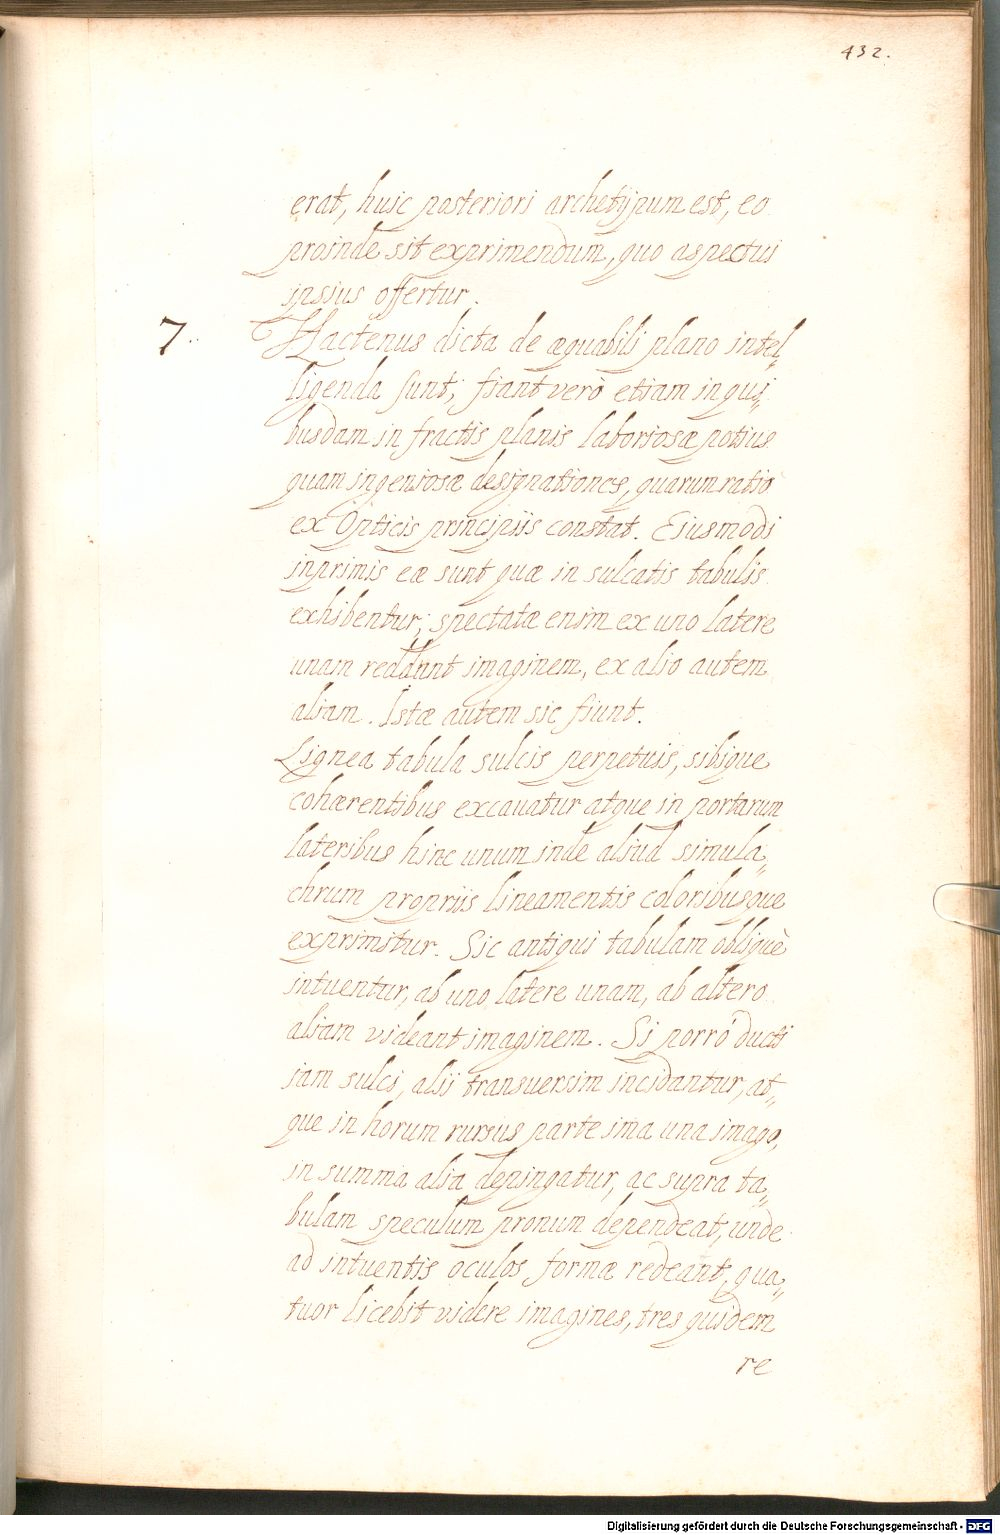 432.
erat, huic posteriori archetijpum est, eo
proinde sit exprimendum, quo aspectui
ipsius offertur.
7.
Hactenus dicta de æquabili plano intel„
ligenda sunt; fiant verò etiam in qui„
busdam in fractis planis laboriosæ potius
quam ingeniosæ designationes, quarum ratio
ex Opticis principiis constat. Eiusmodi
inprimis eæ sunt quæ in sulcatis tabulis
exhibentur; spectatæ enim ex uno latere
unam reddunt imaginem, ex alio autem
aliam. Istæ autem sic fiunt.
Lignea tabula sulcis perpetuis, sibique
cohærentibus excauatur atque in portarum
lateribus hinc unum inde aliud simula„
chrum propriis lineamentis coloribusque
exprimitur. Sic antiqui tabulam obliquè
intuentur, ab uno latere unam, ab altero
aliam videant imaginem. Si porrò ducti
iam sulci, alii transuersim incidantur, at„
que in horum rursus parte ima una imago,
in summa alia depingatur, ac supra ta„
bulam speculum pronum dependeat, unde
ad intuentis oculos formæ redeant, qua„
tuor licebit videre imagines, tres quidem
re
Digitalisierung gefördert durch die Deutsche Forschungsgemeinschaft - DFG